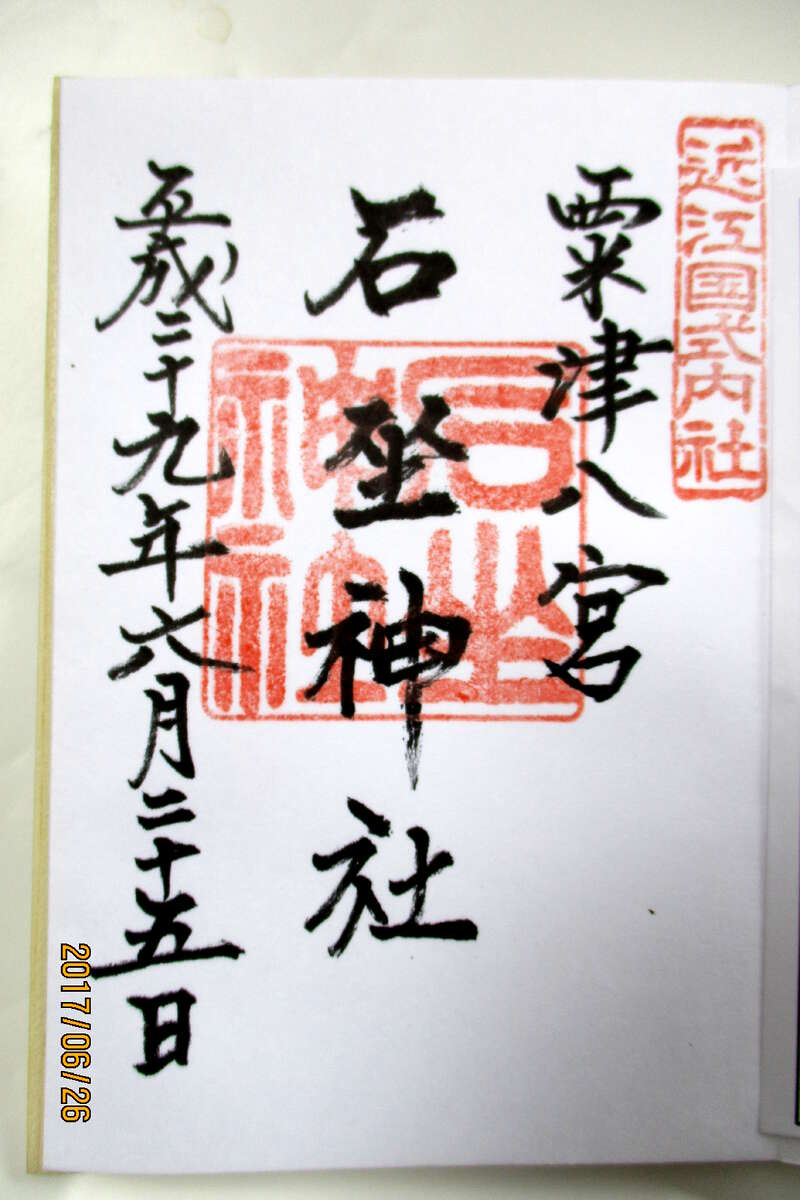 近江国式内社
粟津八宮
石坐神社
石坐神社
平成二十九年六月二十五日
2017/06/26